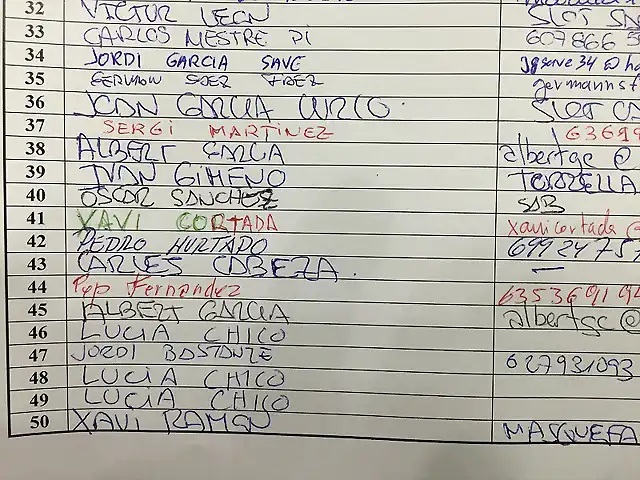 32 VICTOR LEON SLOT
33 CARLOS MESTRE PI 607866
34 JORDI GARCIA SAVE jgsave34@ha
35 GERMAN SAEZ germans
36 JOAN GARCIA CURCO SLOT
37 SERGI MARTINEZ 63699
38 ALBERT GARCIA albertgc@
39 IVAN GIMENO TORRELLA
40 OSCAR SANCHEZ SAB
41 XAVI CORTADA xavicortada@
42 PEDRO HURTADO 6992475
43 CARLES CABEZA. —
44 Pep Fernandez 635369194
45 ALBERT GARCIA albertgc@
46 LUCIA CHICO
47 JORDI BASTANZE 627931093
48 LUCIA CHICO
49 LUCIA CHICO
50 XAVI RAMON MASQUEFA